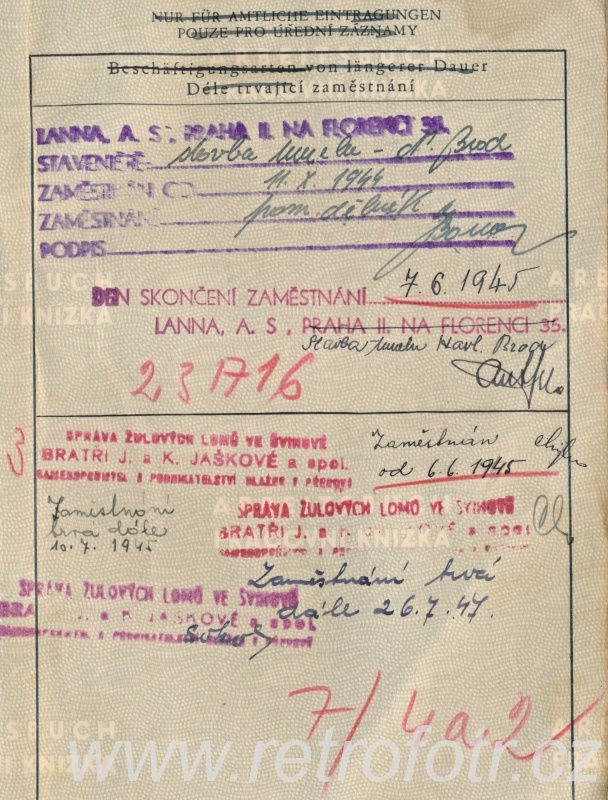 NUR FÜR AMTLICHE EINTRAGUNGEN
POUZE PRO ÚŘEDNÍ ZÁZNAMY
Beschäftigungsarten von längerer Dauer
Déle trvající zaměstnání
LANNA, A. S., PRAHA II. NA FLORENCI 35.
STAVENIŠTĚ stavba tunelu - N. Brod
ZAMĚSTNÁN OD 11. X. 1944
ZAMĚSTNÁNÍ pom. dělník
PODPIS
DEN SKONČENÍ ZAMĚSTNÁNÍ 7.6.1945
LANNA, A. S., PRAHA II. NA FLORENCI 35.
Stavba tunelu Havl. Brody
231716
3
SPRÁVA ŽULOVÝCH LOMŮ VE ŠVIHOVĚ
BRATŘI J. a K. JAŠKOVÉ a spol.
KAMENOPRŮMYSL A PODNIKATELSTVÍ
Zaměstnán
od 6.6.1945
Zaměstnání
trvá dále
10.7.1945
SPRÁVA ŽULOVÝCH LOMŮ VE ŠVIHOVĚ
BRATŘI J. a K. JAŠKOVÉ a spol.
Zaměstnání trvá
dále 26.7.47.
SPRÁVA ŽULOVÝCH LOMŮ VE ŠVIHOVĚ
BRATŘI J. a K. JAŠKOVÉ a spol.
7/4a.2
www.retrofotr.cz